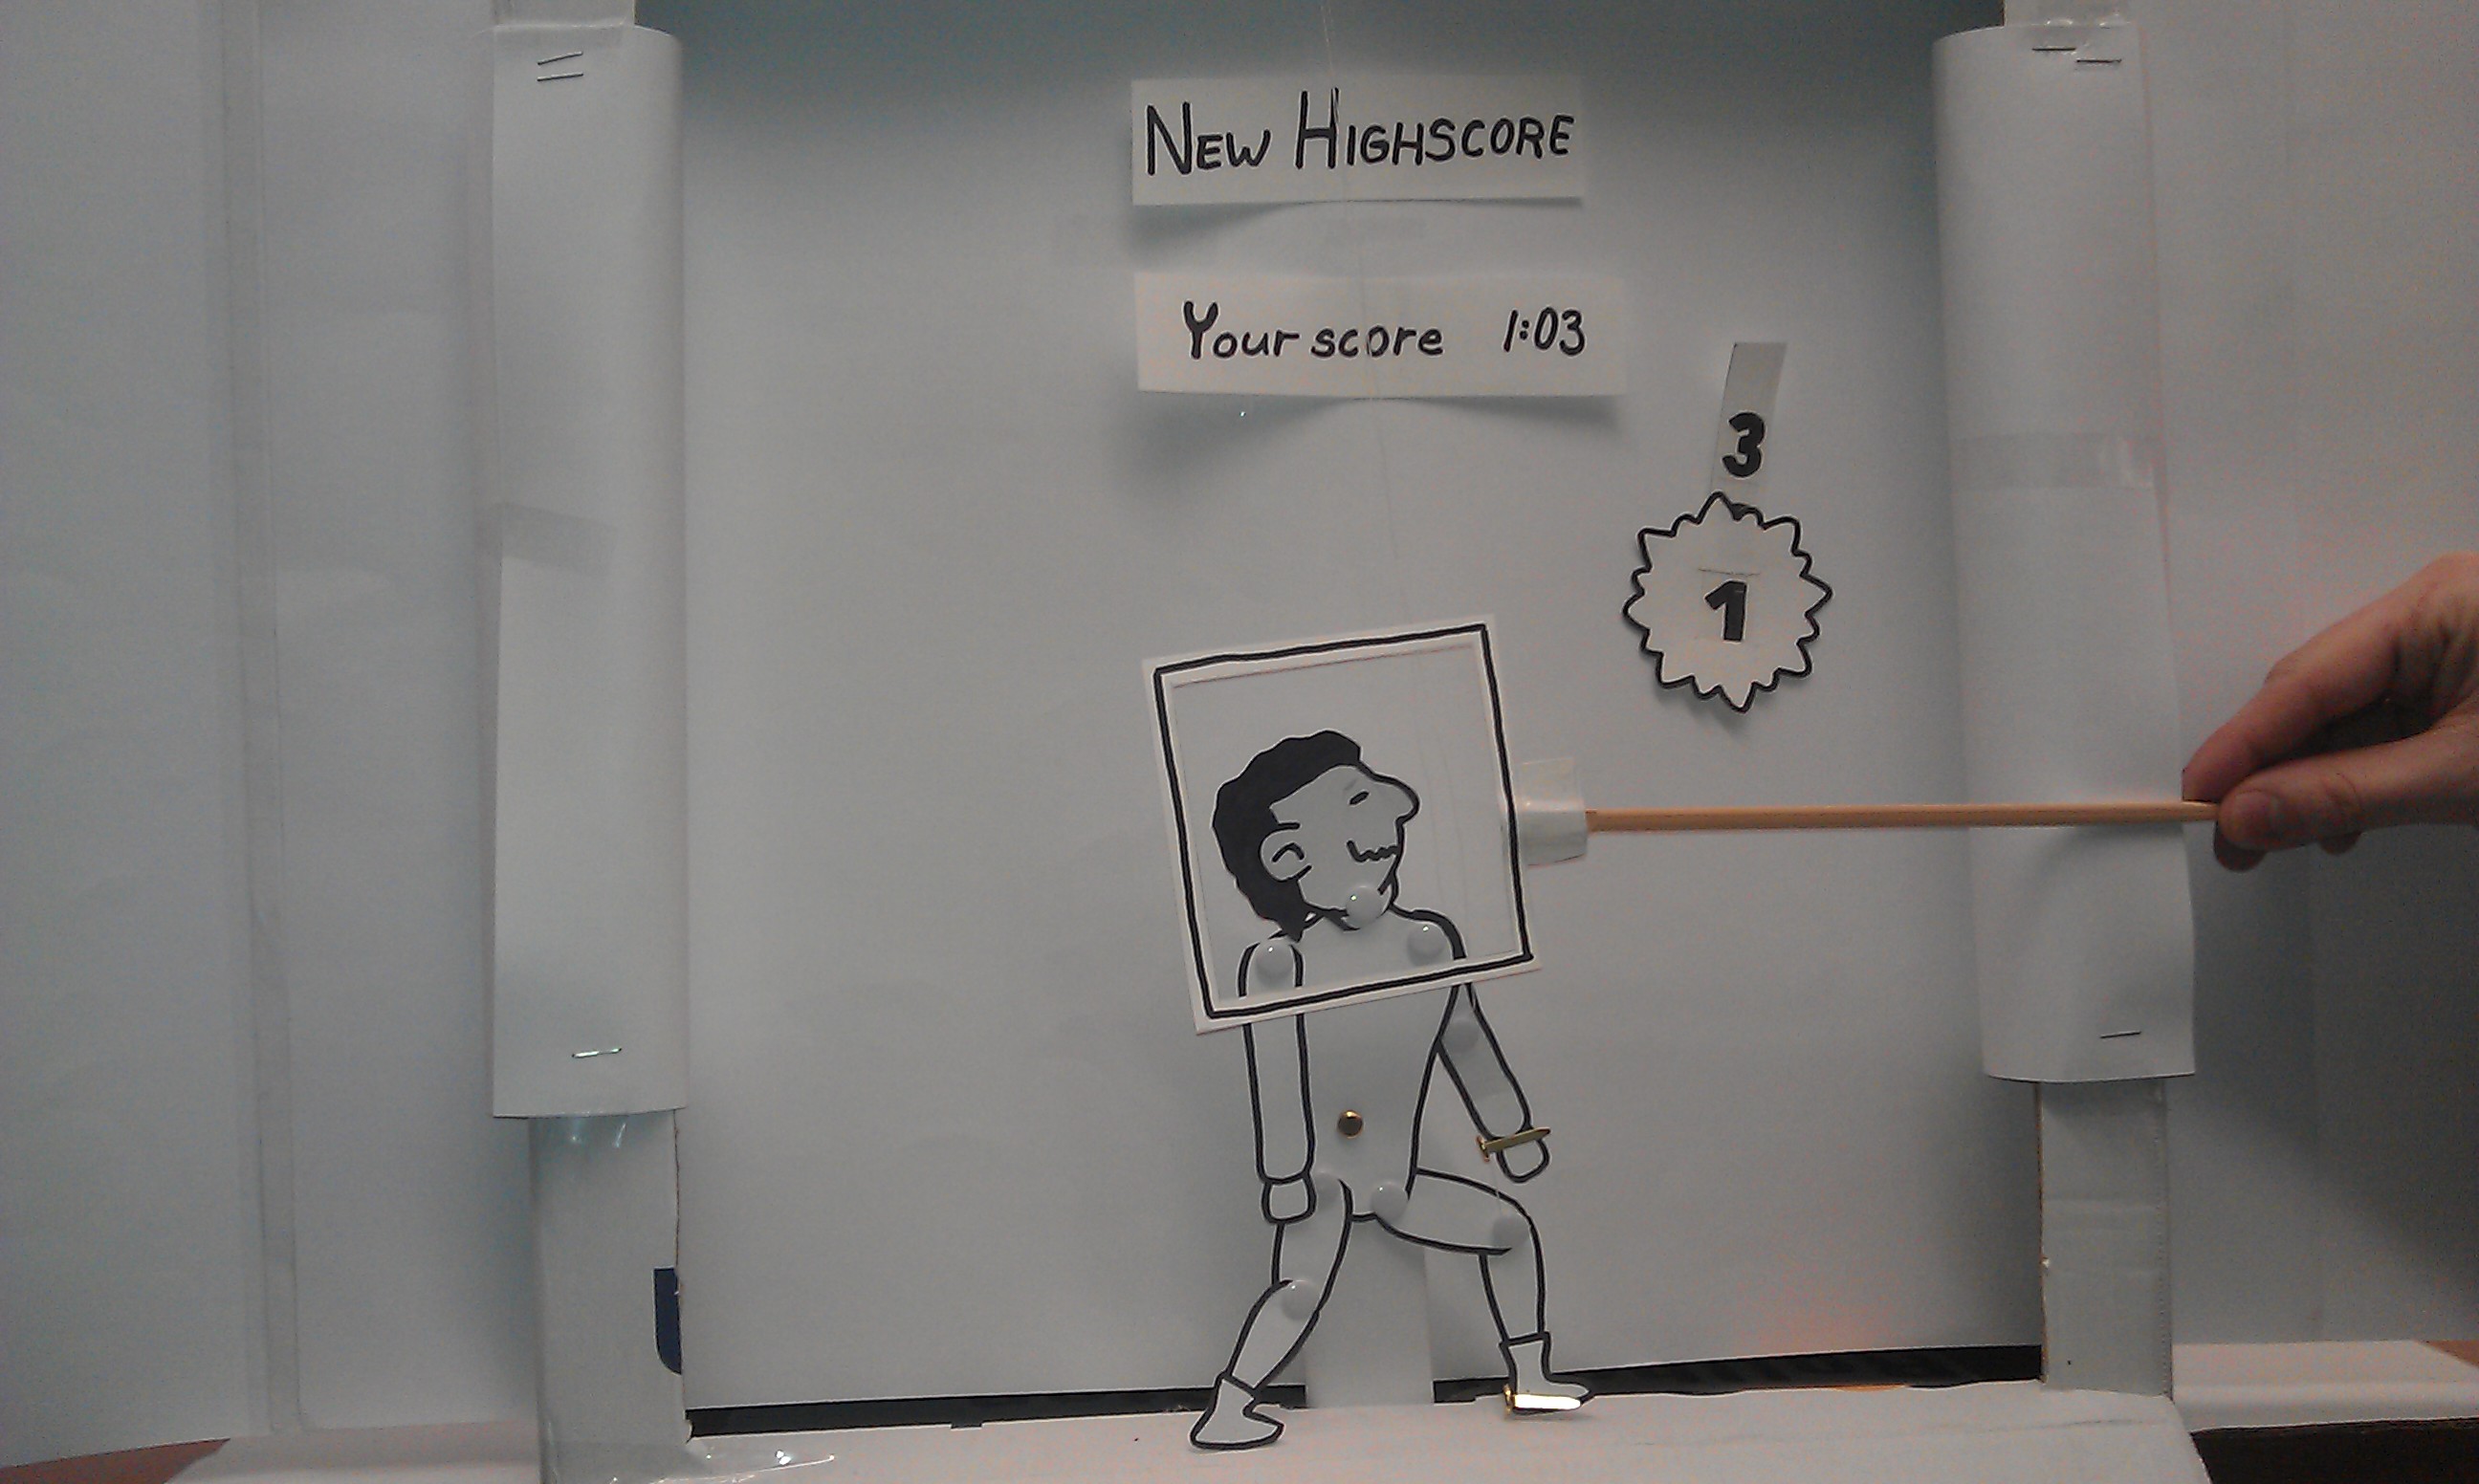 New Highscore
Your score 1:03
3
1